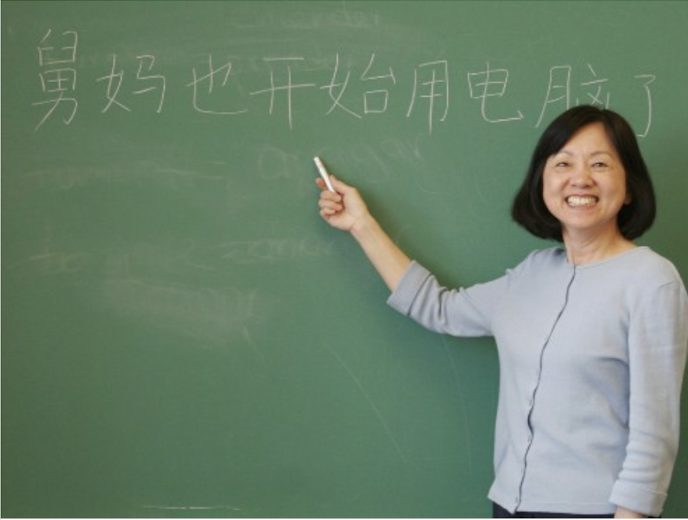 舅妈也开始用电脑了